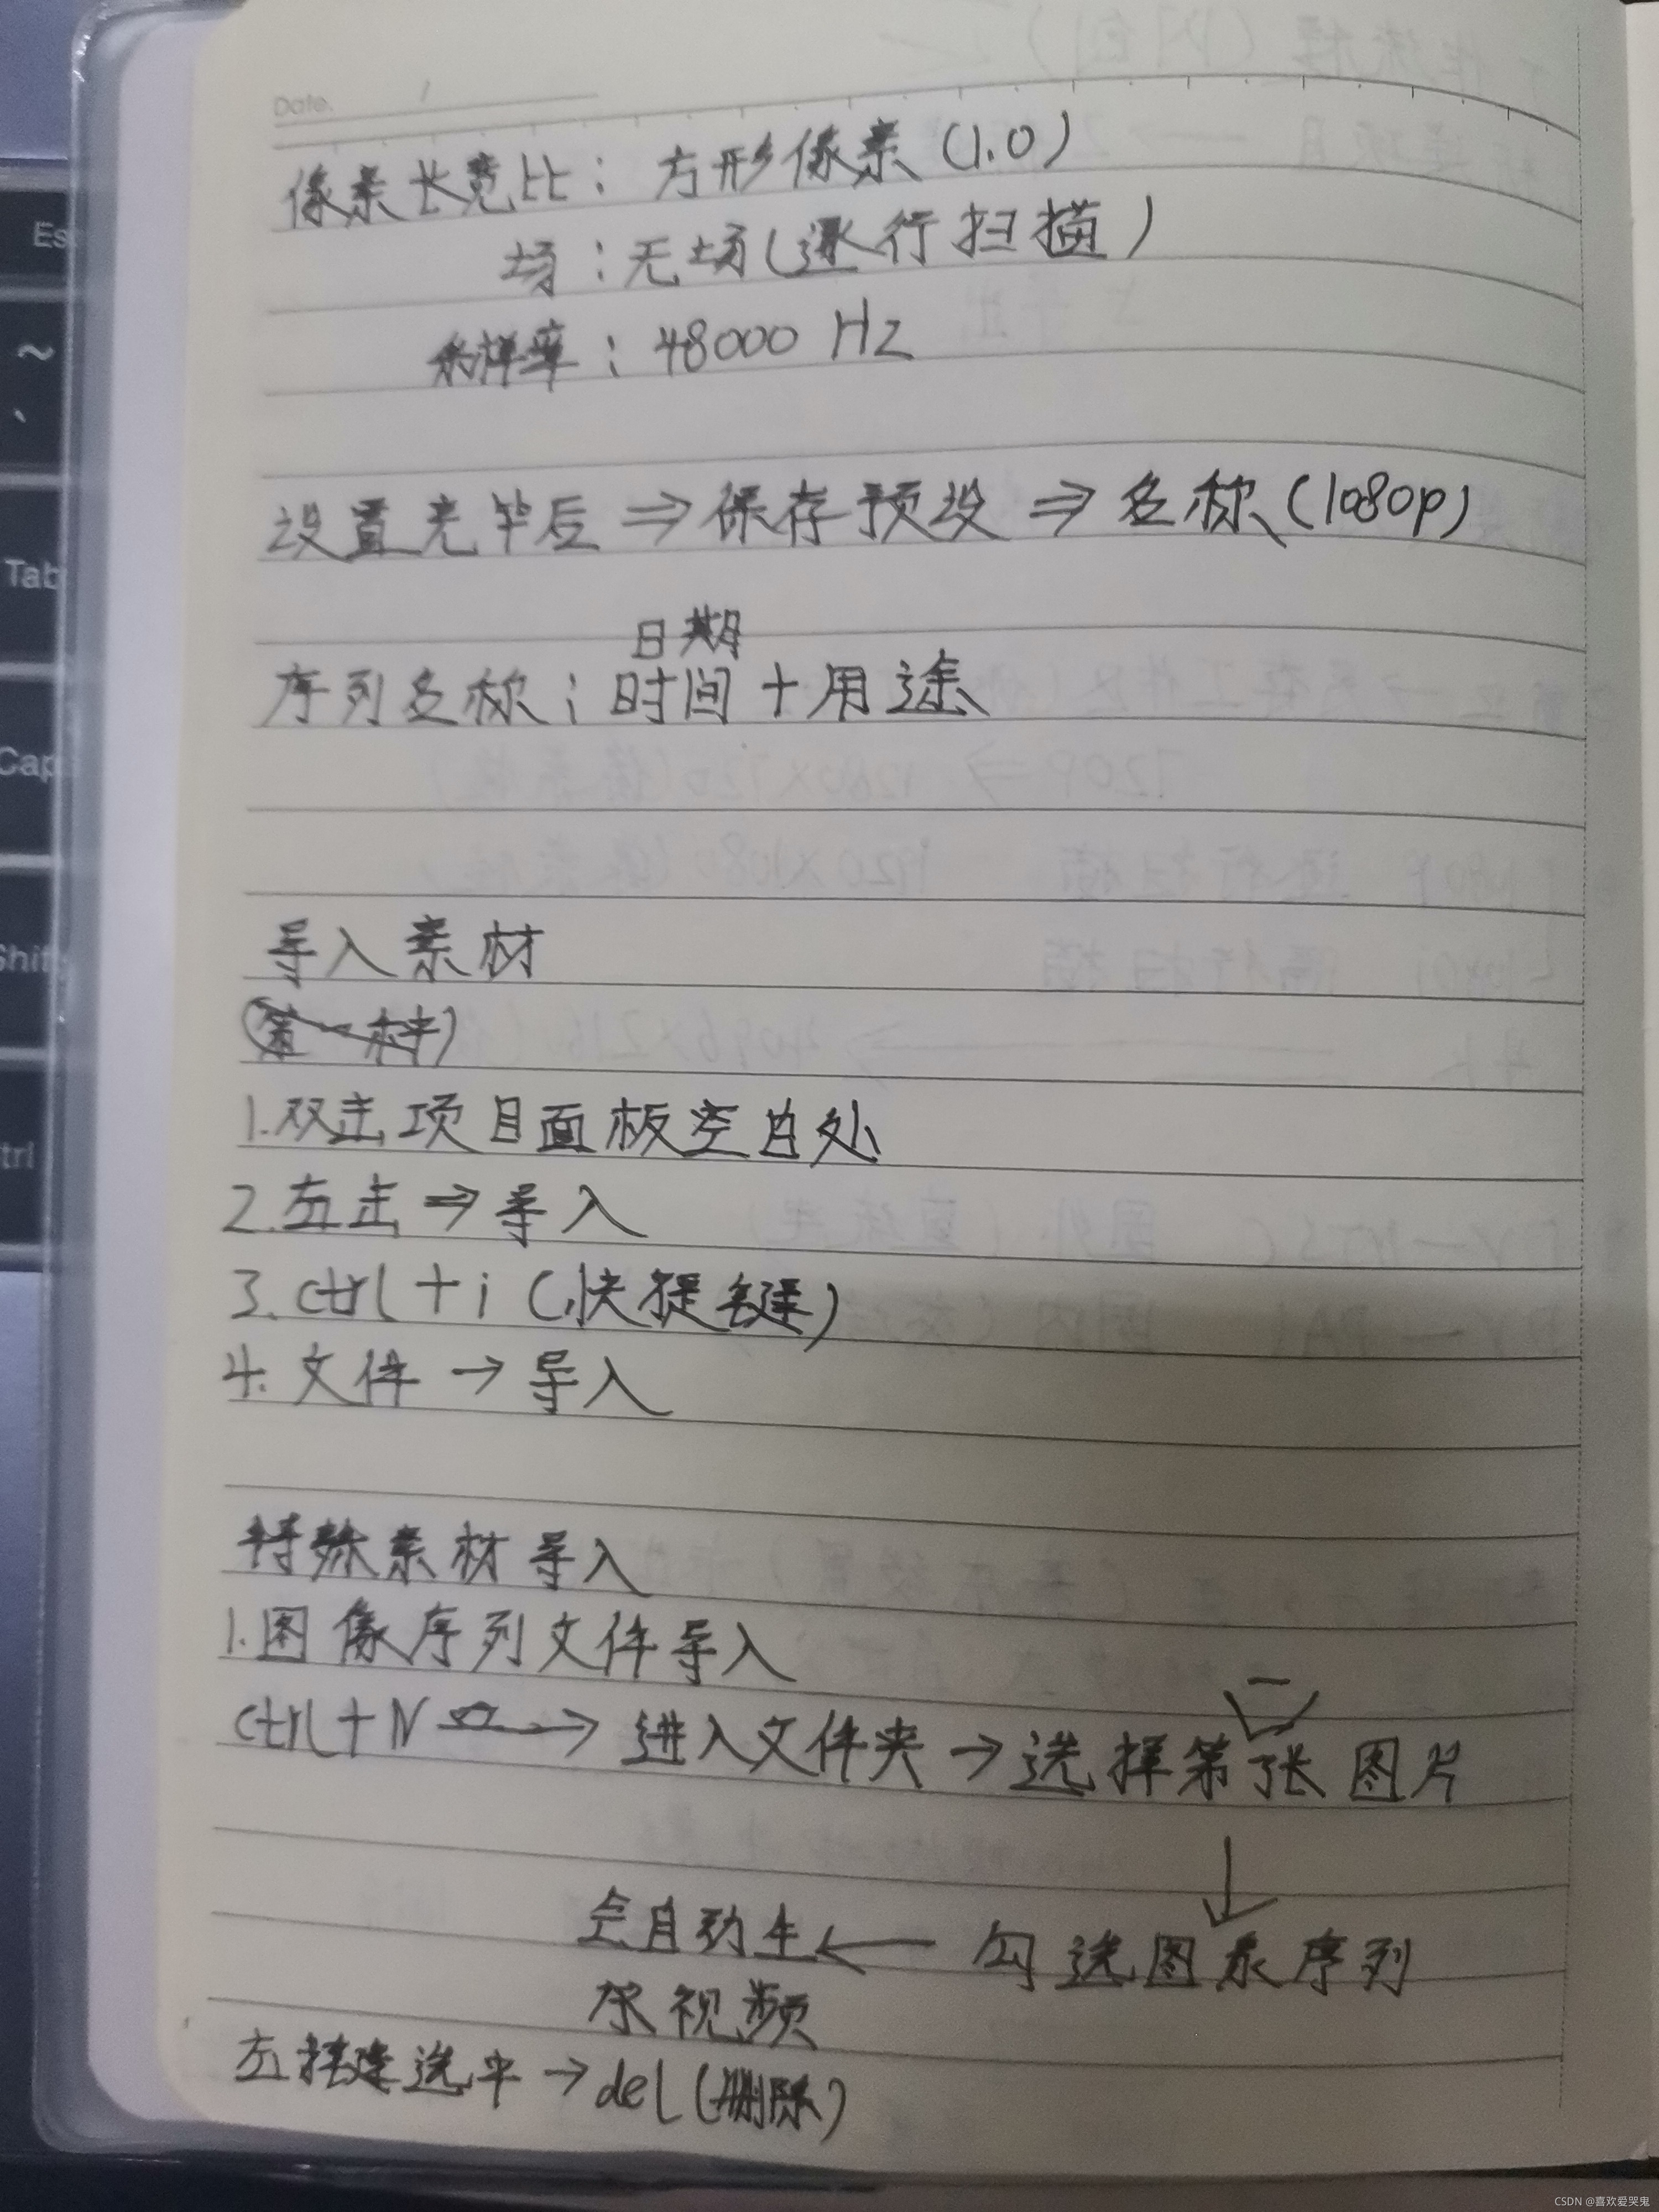 Date.
像素长宽比：方形像素（1.0）
场：无场（逐行扫描）
采样率：48000 Hz
设置完毕后⇒保存预设⇒名称（1080p）
日期
序列名称：时间＋用途
导入素材
（第一种）
1.双击项目面板空白处
2.右击⇒导入
3.ctrl＋i（快捷键）
4.文件→导入
特殊素材导入
1.图像序列文件导入
一
ctrl＋N→进入文件夹→选择第张图片
↓
会自动生←勾选图象序列
成视频
左键选中→del（删除）
Esc
~
`
Tab
Caps
Shift
Ctrl
CSDN @喜欢爱哭鬼